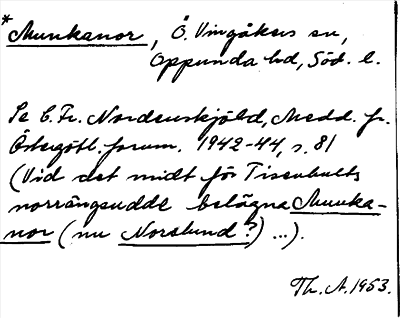 *Munkanor, Ö. Vingåkers sn,
Oppunda hd, Söd. l.
Se C. Fr. Nordenskjöld, Medd. fr.
Östergötl. fornm. 1942-44, s. 81
(Vid det midt för Tisenhults
norrängsudde belägna Munka-
nor (nu Norslund?) ...).
Th. A. 1953.